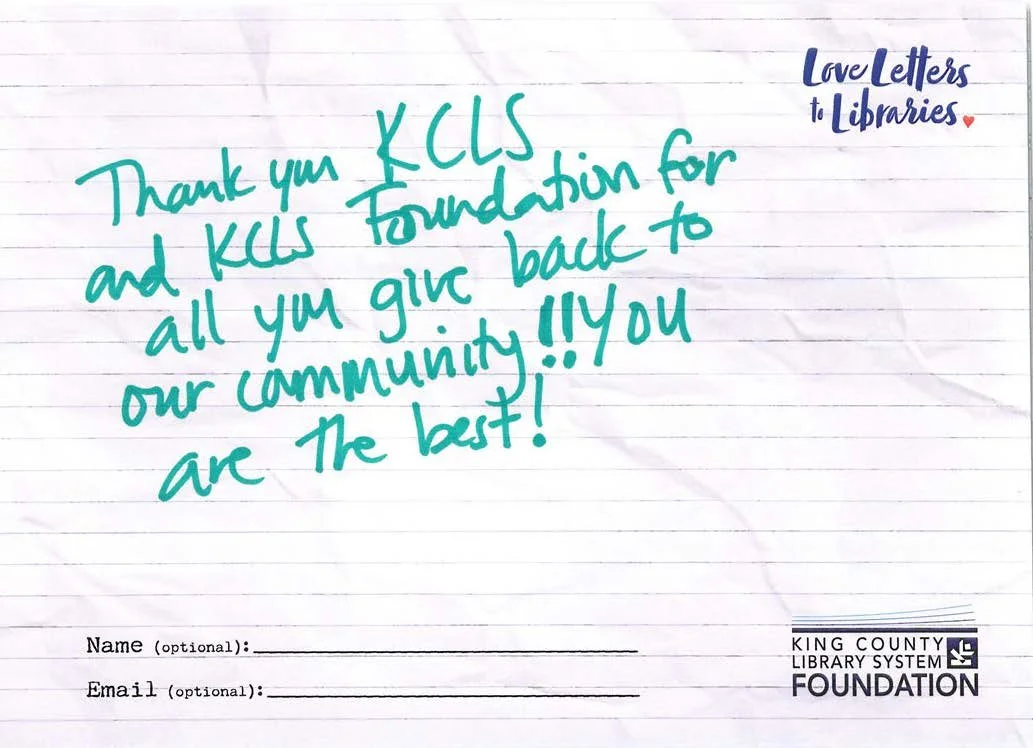 Love Letters
to Libraries.
Thank you KCLS
and KCLS Foundation for
all you give back to
our community!!! You
are the best!
Name (optional):
Email (optional):
KING COUNTY
LIBRARY SYSTEM
FOUNDATION